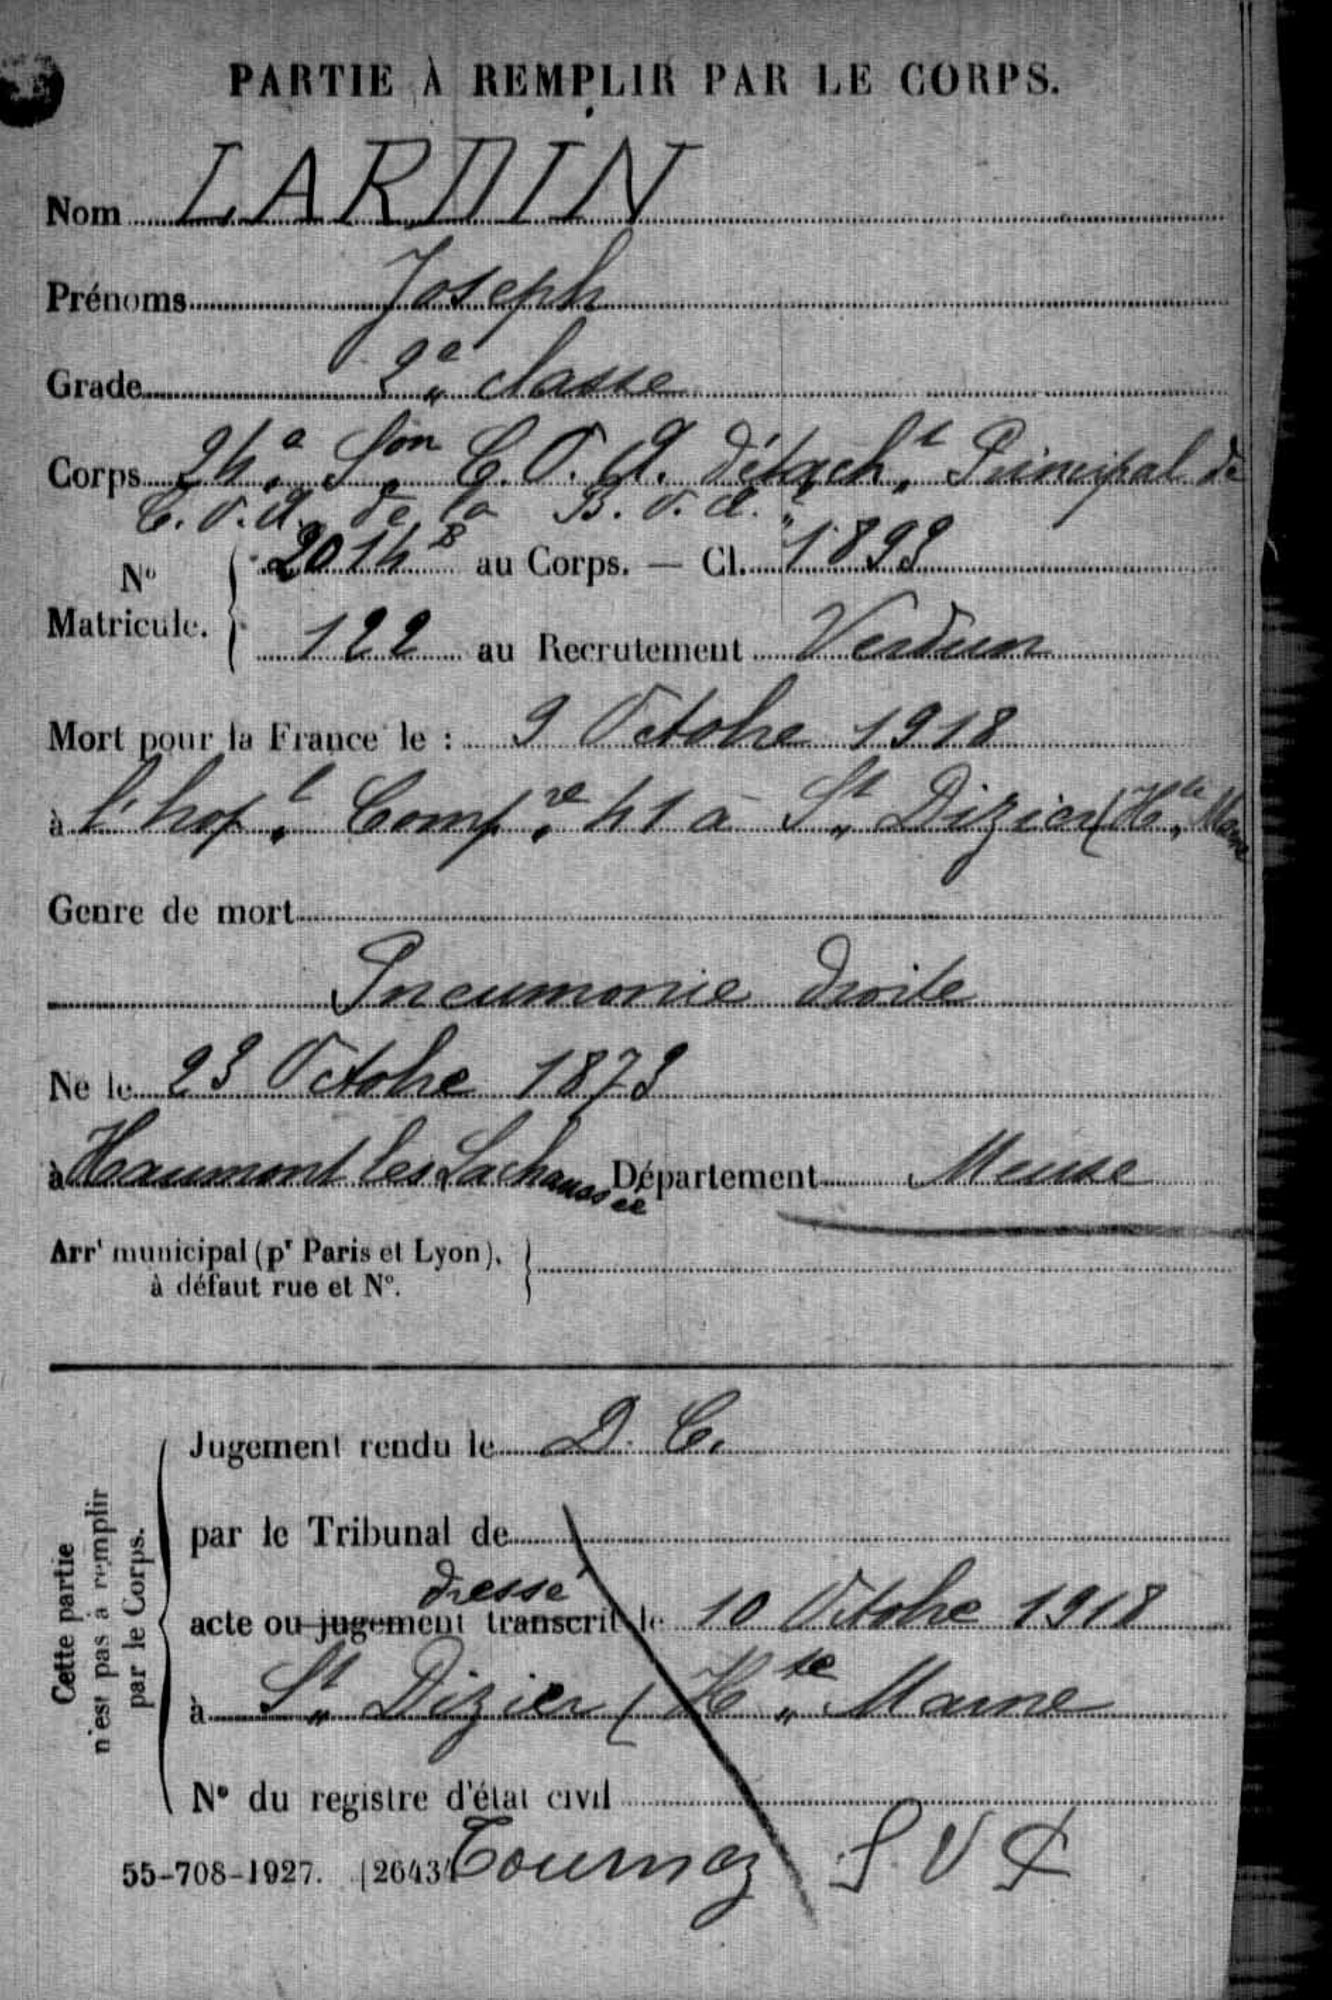 PARTIE À REMPLIR PAR LE CORPS.
Nom LARDIN
Prénoms Joseph
Grade 2e classe
Corps 24e Son C.O.A. détacht Principal de
C.O.A. de la B.O.A.
No Matricule. 2014B au Corps. — Cl. 1893
122 au Recrutement Verdun
Mort pour la France le : 9 Octobre 1918
à l'hopl Compre 41 à St Dizier (Hte Marne
Genre de mort
Pneumonie droite
Né le 23 Octobre 1873
à Haumont les Lachaussée Département Meuse
Arrt municipal (pr Paris et Lyon),
à défaut rue et No.
Cette partie
n'est pas à remplir
par le Corps.
Jugement rendu le D. C.
par le Tribunal de
dressé
acte ou jugement transcrit le 10 Octobre 1918
à St Dizier (Hte Marne
No du registre d'état civil
55-708-1927. [26434 Tournaz S V